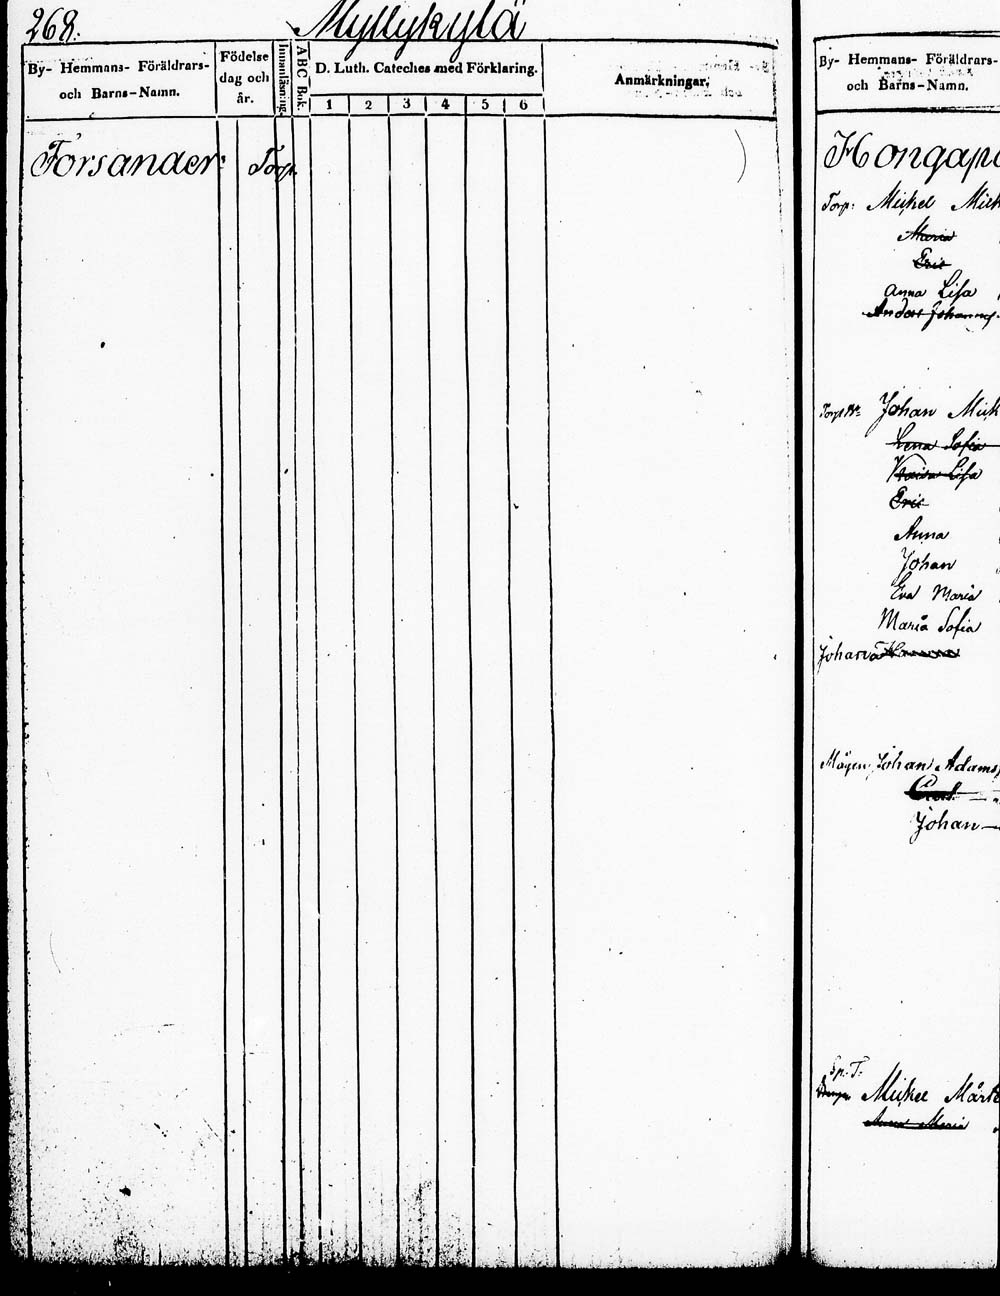 268.
Myllykylä
By- Hemmans- Föräldrars-
och Barns-Namn.
Födelse
dag och
år.
Innanläsning.
ABC Bok.
D. Luth. Cateches med Förklaring.
1 2 3 4 5 6
Anmärkningar.
Forsander: Torp.
By- Hemmans- Föräldrars-
och Barns-Namn.
Hongapä
Torp: Mickel Mick
Maria
Eric
Anna Lisa
Anders Johannes
Johan Mick
Lena Sofia
Kaisa Lisa
Eric
Anna
Johan
Eva Maria
Maria Sofia
Johan
Johan Adams
Johan
Sp. T.
Mickel Mårte
Anna Maria